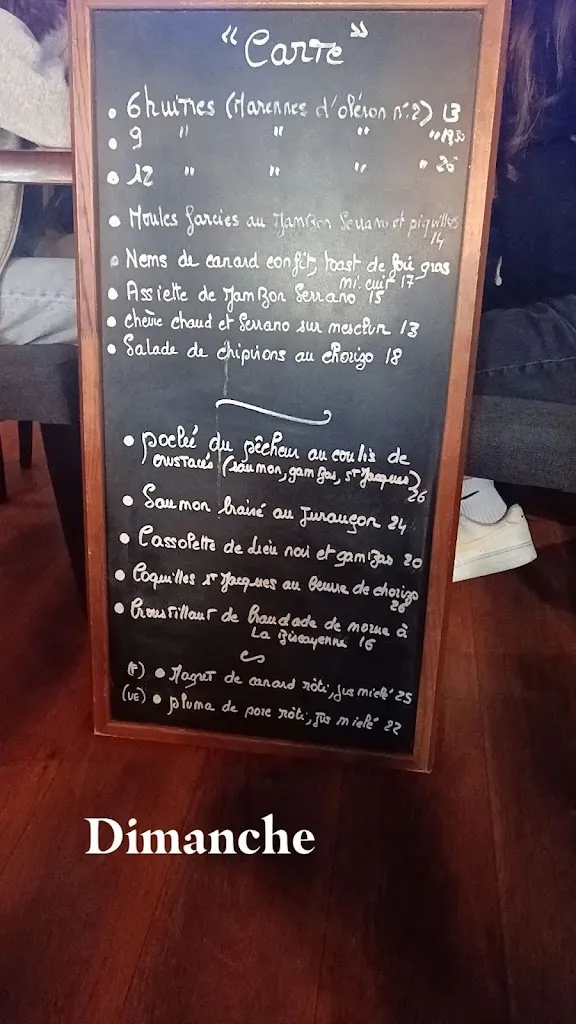 "Carte"
• 6 huitres (Marennes d'oléron n°2) 13
• 9 " " " " 19.50
• 12 " " " " 26
• Moules farcies au Jambon Serrano et piquillos
14
• Nems de canard confit, toast de foie gras
mi. cuit 17
• Assiette de Jambon Serrano 15
• chèvre chaud et Serrano sur mesclun 13
• Salade de chipirons au chorizo 18
• poelée du pêcheur au coulis de
crustacés (saumon, gambas, st Jacques)
26
• Saumon braisé au Jurançon 24
• Cassolette de Lieu noir et gambas 20
• Coquilles st Jacques au beurre de chorizo
26
• Croustillant de brandade de morue à
La Biscayenne 16
(F) • Magret de canard rôti, jus miélé 25
(UE) • pluma de porc rôti, jus miélé 22
Dimanche